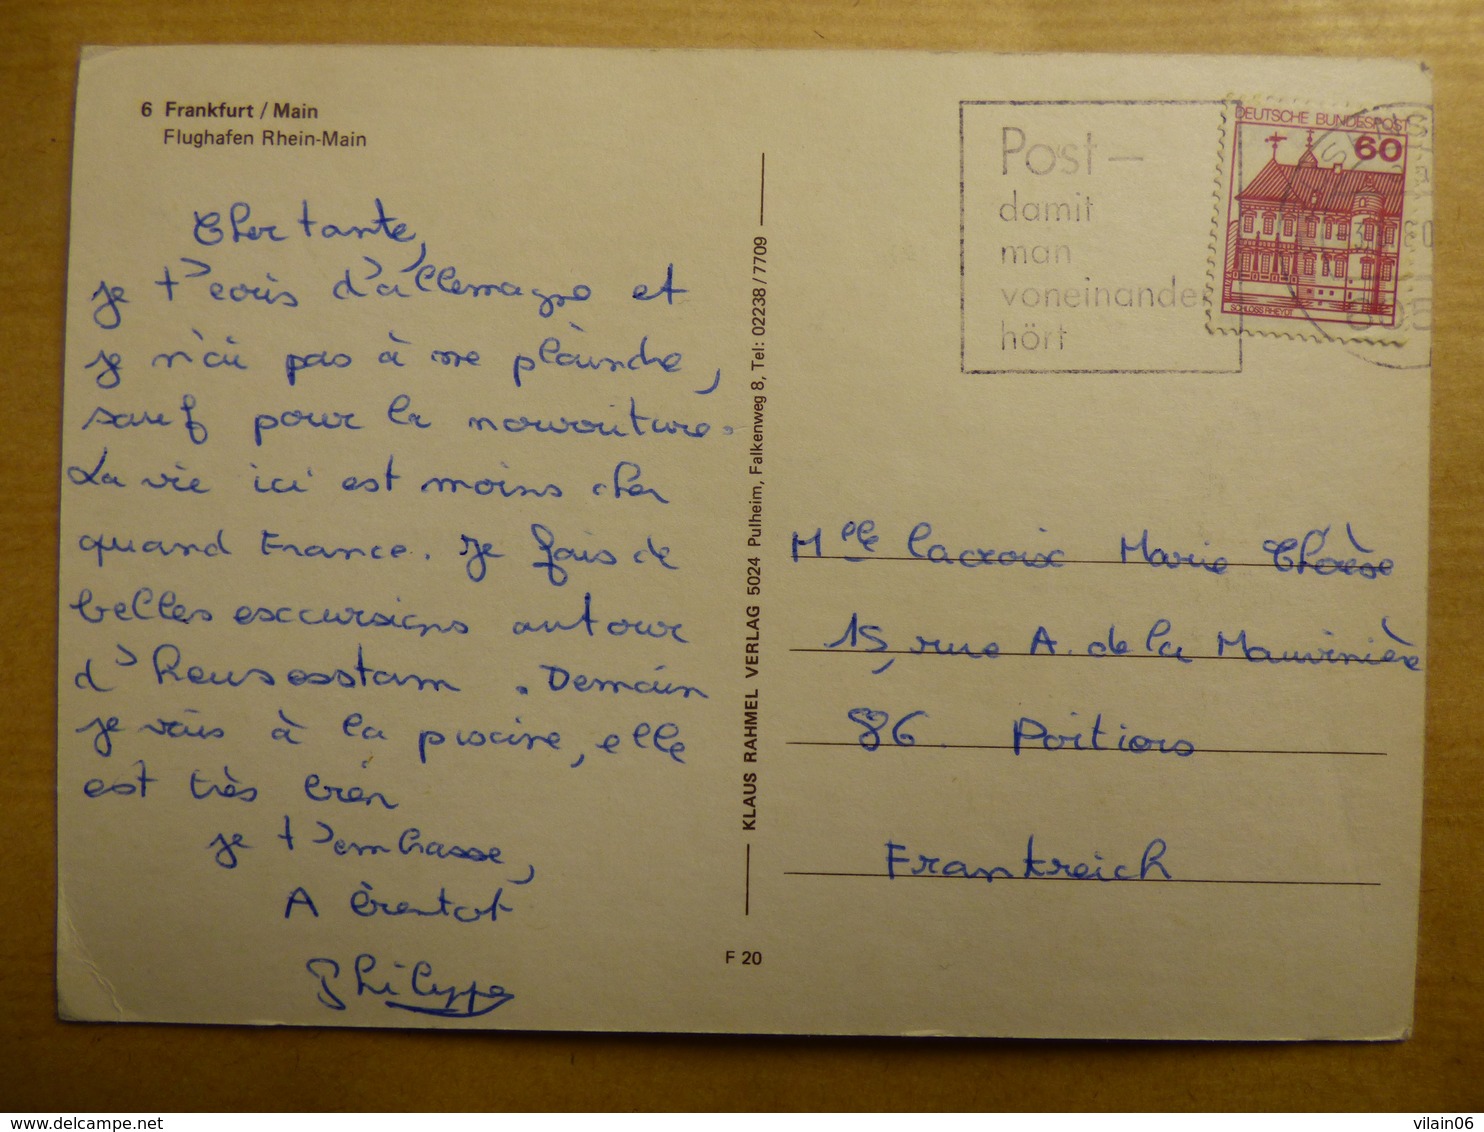 6 Frankfurt / Main
Flughafen Rhein-Main
Cher tante,
je t'ecris d'allemagne et
je n'ai pas à me plaindre,
sauf pour la nourriture.
La vie ici est moins cher
quand France. Je fais de
belles excursions autour
d'heusesstam. Demain
je vais à la piscine, elle
est très bien
je t'embrasse,
A bientot
Philippe
KLAUS RAHMEL VERLAG 5024 Pulheim, Falkenweg 8, Tel: 02238/7709
F 20
Post –
damit
man
voneinander
hört
DEUTSCHE BUNDESPOST
60
SCHLOSS RHEYDT
Mlle Lacroix Marie Thérèse
15, rue A. de la Mauvinière
86 Poitiers
Frankreich
delcampe.net
vilain06